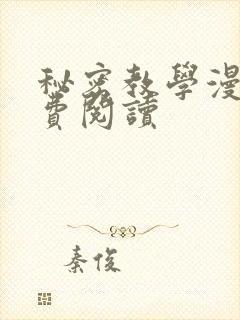 秘密教學漫
費閱讀
秦俊